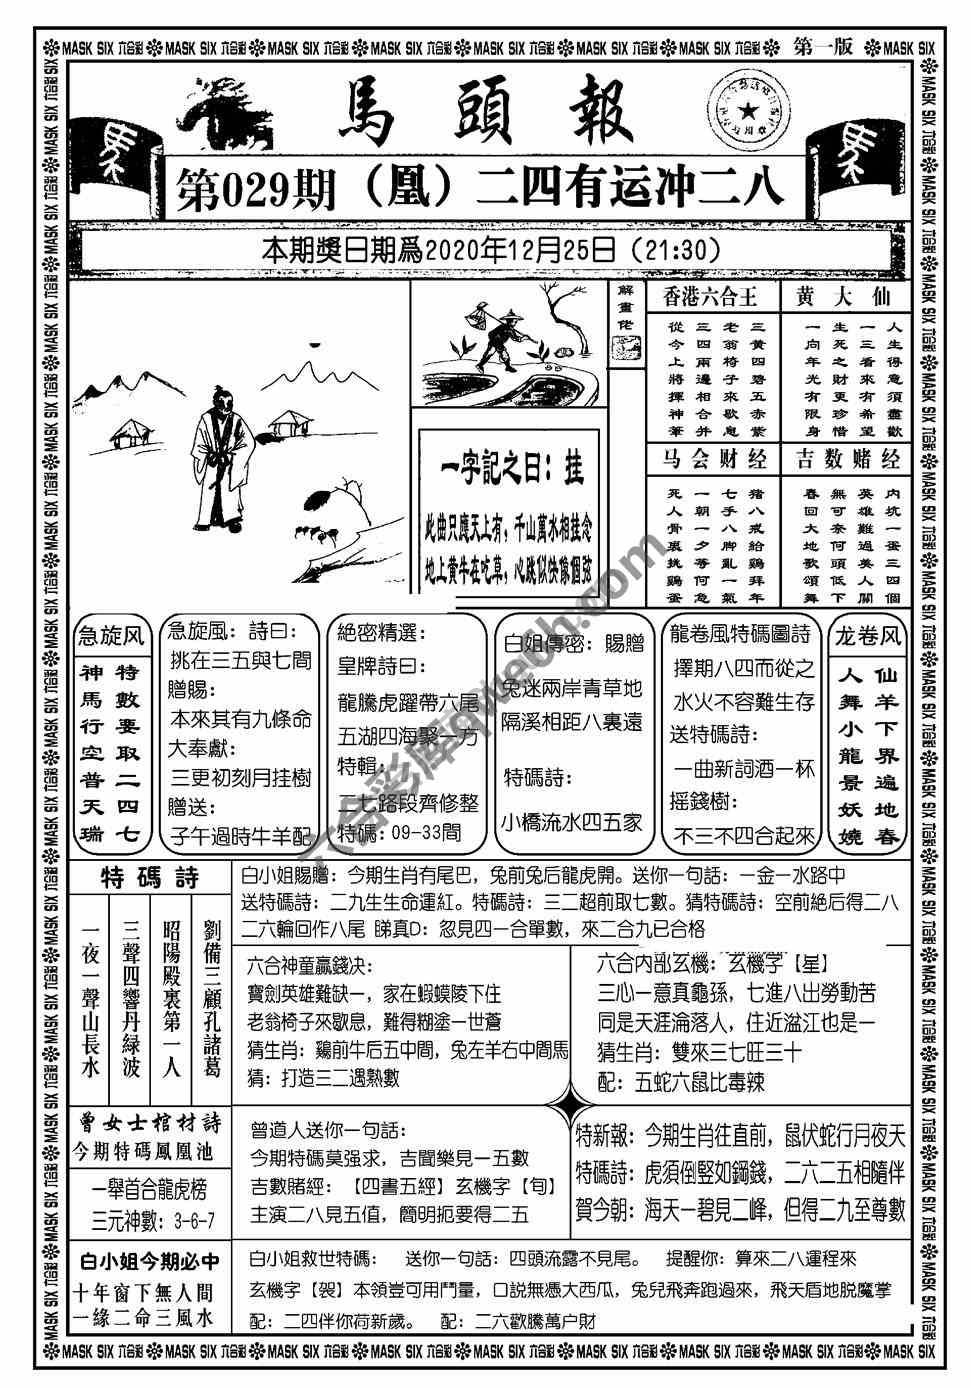 MASK SIX 六合彩 MASK SIX 六合彩 MASK SIX 六合彩 MASK SIX 六合彩 MASK SIX 六合彩 MASK SIX 六合彩 MASK SIX 六合彩 第一版 MASK SIX
馬頭報
第029期（凰）二四有运冲二八
本期獎日期爲2020年12月25日（21:30）
解畫佬
香港六合王
三黃四碧五赤紫
老翁椅子來歇息
三四兩邊相合并
從今上將揮神筆
黄大仙
人生得意須盡歡
一三看來有希望
生死之財更珍惜
一向年光有限身
一字記之曰：挂
此曲只應天上有，千山萬水相挂念
地上黄牛在吃草，心跳似快像個弦
马会财经
猪八戒給鷄拜年
七手八脚亂一氣
一朝一夕等何急
死人骨裏挑鷄蛋
吉数赌经
内坑一蛋三四個
英雄難過美人關
無可奈何頭低下
春回大地歌頌舞
急旋风
特數要取二四七
神馬行空普天瑞
急旋風：詩曰：
挑在三五與七間
贈賜：
本來其有九條命
大奉獻：
三更初刻月挂樹
贈送：
子午過時牛羊配
絕密精選：
皇牌詩曰：
龍騰虎躍帶六尾
五湖四海聚一方
特輯：
二七路段齊修整
特碼：09-33間
白姐傳密：賜贈
兔迷兩岸青草地
隔溪相距八裏遠
特碼詩：
小橋流水四五家
龍卷風特碼圖詩
擇期八四而從之
水火不容難生存
送特碼詩：
一曲新詞酒一杯
摇錢樹：
不三不四合起來
龙卷风
仙羊下界遍地春
人舞小龍景妖嬈
六合彩库
特碼詩
劉備三顧孔諸葛
昭陽殿裏第一人
三聲四響丹緑波
一夜一聲山長水
白小姐賜贈：今期生肖有尾巴，兔前兔后龍虎開。送你一句話：一金一水路中
送特碼詩：二九生生命運紅。特碼詩：三二超前取七數。猜特碼詩：空前絕后得二八
二六輪回作八尾 睇真D：忽見四一合單數，來二合九已合格
六合神童贏錢决：
寶劍英雄難缺一，家在蝦蟆陵下住
老翁椅子來歇息，難得糊塗一世蒼
猜生肖：鷄前牛后五中間，兔左羊右中間馬
猜：打造三二遇熟數
六合内部玄機：玄機字【星】
三心一意真龜孫，七進八出勞動苦
同是天涯淪落人，住近湓江也是一
猜生肖：雙來三七旺三十
配：五蛇六鼠比毒辣
曾女士棺材詩
今期特碼鳳凰池
一舉首合龍虎榜
三元神數：3-6-7
曾道人送你一句話：
今期特碼莫强求，吉聞樂見一五數
吉數賭經：【四書五經】玄機字【旬】
主演二八見五值，簡明扼要得二五
特新報：今期生肖往直前，鼠伏蛇行月夜天
特碼詩：虎須倒竪如鋼錢，二六二五相隨伴
賀今朝：海天一碧見二峰，但得二九至尊數
白小姐今期必中
十年窗下無人問
一缘二命三風水
白小姐救世特碼： 送你一句話：四頭流露不見尾。 提醒你：算來二八運程來
玄機字【袈】本領豈可用鬥量，口説無憑大西瓜，兔兒飛奔跑過來，飛天盾地脱魔掌
配：二四伴你荷新歲。 配：二六歡騰萬户財
MASK SIX 六合彩 MASK SIX 六合彩 MASK SIX 六合彩 MASK SIX 六合彩 MASK SIX 六合彩 MASK SIX 六合彩 MASK SIX 六合彩 MASK SIX 六合彩 MASK SIX